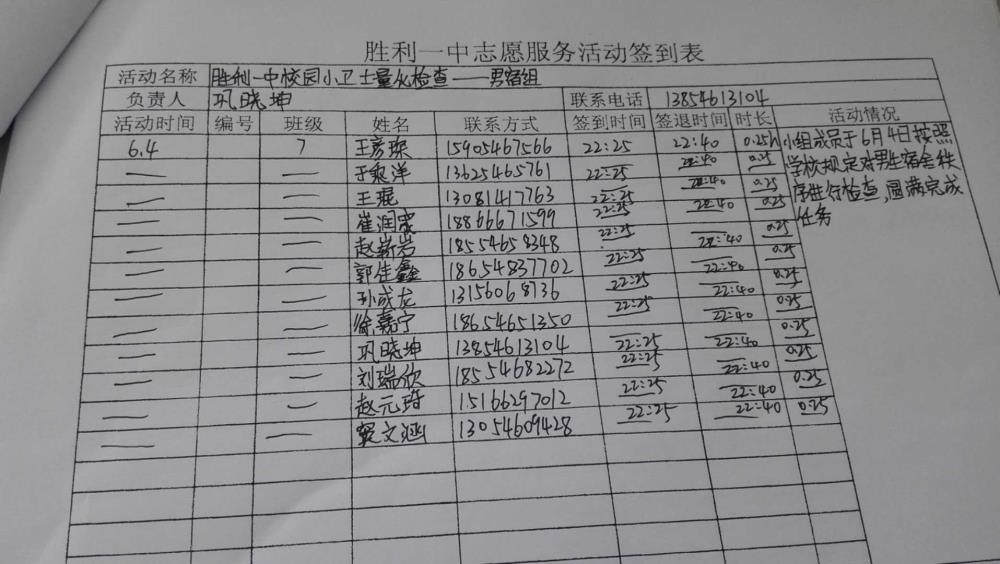 胜利一中志愿服务活动签到表
活动名称 胜利一中校园小卫士量化检查——男宿组
负责人 巩晓坤 联系电话 13854613104
活动时间 编号 班级 姓名 联系方式 签到时间 签退时间 时长 活动情况
6.4 7 王彦琛 15905467566 22:25 22:40 0.25h 小组成员于6月4日按照
— — 于秉洋 13625465761 22:25 22:40 0.25 学校规定对男生宿舍秩
— — 王琨 13081417763 22:25 22:40 0.25 序进行检查,圆满完成
— — 崔润家 18866671599 22:25 22:40 0.25 任务
— — 赵崭岩 18554658348 22:25 22:40 0.25
— — 郭佳鑫 18654837702 22:25 22:40 0.25
— — 孙成龙 13156068736 22:25 22:40 0.25
— — 徐嘉宁 18654651350 22:25 22:40 0.25
— — 巩晓坤 13854613104 22:25 22:40 0.25
— — 刘瑞欣 18554682272 22:25 22:40 0.25
— — 赵元 15166297012 22:25 22:40 0.25
— — 窦文涵 13054609428 22:25 22:40 0.25